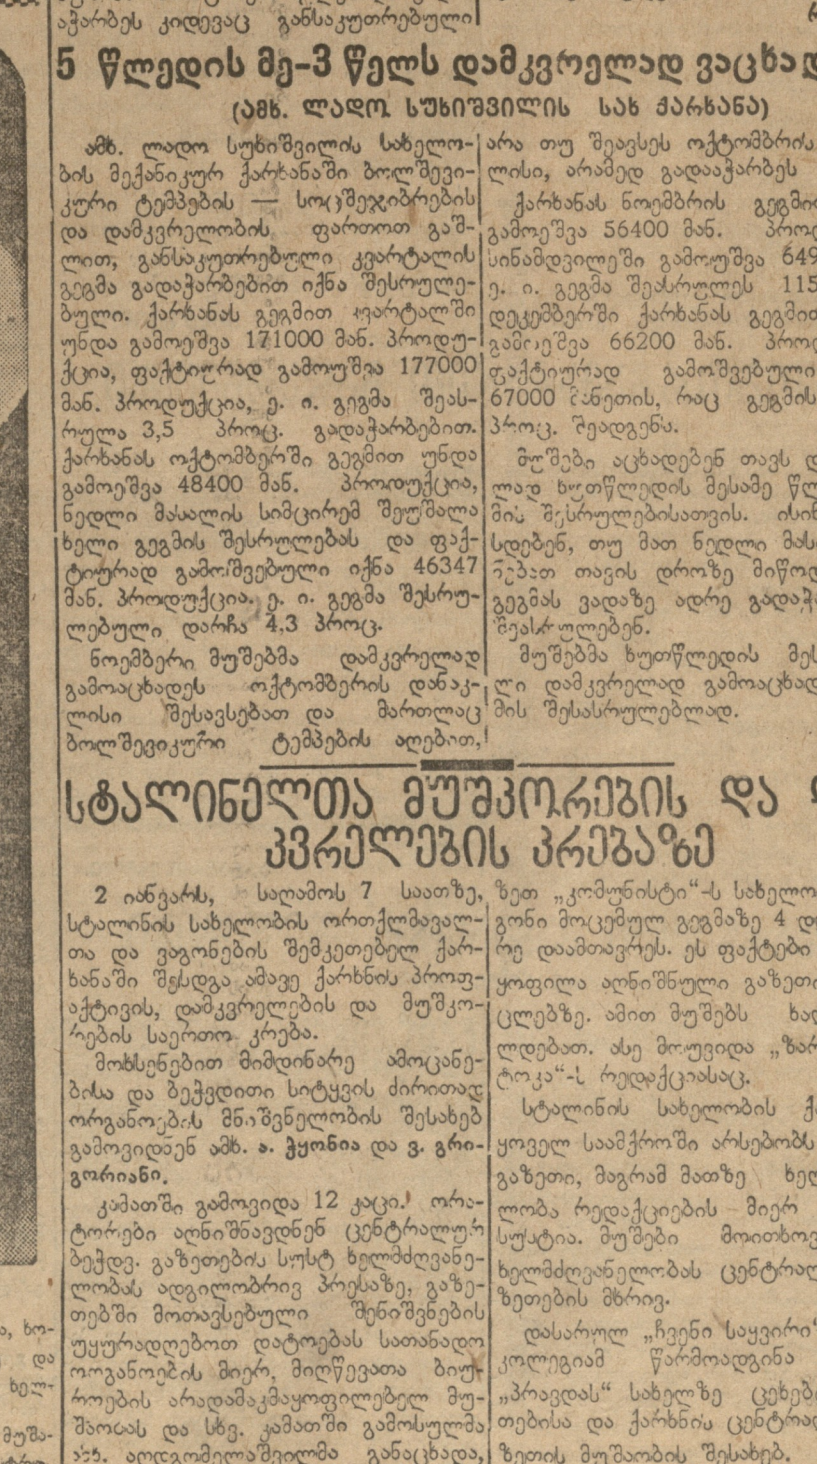 აჭარბეს კიდევაც განსაკუთრებული
5 წლედის მე-3 წელს დამკვრელად ვაცხად
(ამხ. ლადო სუხიშვილის სახ ქარხანა)
ამხ. ლადო სუხიშვილის სახელო-
ბის მექანიკურ ქარხანაში ბოლშევი-
კური ტემპების — სოცშეჯიბრების
და დამკვრელობის ფართოთ გაშ-
ლით, განსაკუთრებული კვარტალის
გეგმა გადაჭარბებით იქნა შესრულე-
ბული. ქარხანას გეგმით კვარტალში
უნდა გამოეშვა 171000 მან. პროდუ-
ქცია, ფაქტიურად გამოუშვა 177000
მან. პროდუქცია, ე. ი. გეგმა შეას-
რულა 3,5 პროც. გადაჭარბებით.
ქარხანას ოქტომბერში გეგმით უნდა
გამოეშვა 48400 მან. პროდუქცია,
ნედლი მასალის სიმცირემ შეუშალა
ხელი გეგმის შესრულებას და ფაქ-
ტიურად გამოშვებული იქნა 46347
მან. პროდუქცია. ე. ი. გეგმა შესრუ-
ლებული დარჩა 4,3 პროც.
ნოემბერი მუშებმა დამკვრელად
გამოაცხადეს ოქტომბერის დანაკ-
ლისი შესავსებათ და მართლაც
ბოლშევიკური ტემპების აღებით,
არა თუ შეავსეს ოქტომბრის
ლისი, არამედ გადააჭარბეს
ქარხანას ნოემბრის გეგმით
გამოეშვა 56400 მან. პროდ
სინამდვილეში გამოუშვა 649
ე. ი. გეგმა შეასრულეს 115
დეკემბერში ქარხანას გეგმით
გამოეშვა 66200 მან. პროდ
ფაქტიურად გამოშვებული
67000 მანეთის, რაც გეგმის
პროც. შეადგენს.
მუშები აცხადებენ თავს დ
ლად ხუთწლედის მესამე წლ
მის შესრულებისათვის. ისინ
სდებენ, თუ მათ ნედლი მას
ნებათ თავის დროზე მიწოდ
გეგმას ვადაზე ადრე გადაჭ
შეასრულებენ.
მუშებმა ხუთწლედის მეს
ლი დამკვრელად გამოაცხად
მის შესასრულებლად.
სტალინელთა მუშკორების და
კვრელების კრებაზე
2 იანვარს, საღამოს 7 საათზე,
სტალინის სახელობის ორთქლმავალ-
თა და ვაგონების შემკეთებელ ქარ-
ხანაში შესდგა ამავე ქარხნის პროფ-
აქტივის, დამკვრელების და მუშკო-
რების საერთო კრება.
მოხსენებით მიმდინარე ამოცანე-
ბისა და ბეჭვდითი სიტყვის ძირითად
ორგანოების მნიშვნელობის შესახებ
გამოვიდნენ ამხ. ა. ჭყონია და ვ. გრი-
გორიანი.
კამათში გამოვიდა 12 კაცი. ორა-
ტორები აღნიშნავდნენ ცენტრალურ
ბეჭდვ. გაზეთების სუსტ ხელმძღვანე-
ლობას ადგილობრივ პრესაზე, გაზე-
თებში მოთავსებული შენიშვნების
უყურადღებოთ დატოებას სათანადო
ორგანოების მიერ, მიღწევათა ბიუ-
როების არადამაკმაყოფილებელ მუ-
შაობას და სხვ. კამათში გამოსულმა
ამხ. აღდგომელაშვილმა განაცხადა,
ზეთ „კომუნისტი“-ს სახელო
გონი მოცემულ გეგმაზე 4 დ
რე დაამთავრეს. ეს ფაქტები
ყოფილა აღნიშნული გაზეთი
ცლებზე. ამით მუშებს ხალ
ლდებათ. ასე მოუვიდა „ზარ
ტოკა“-ს რედაქციასაც.
სტალინის სახელობის ქ
ყოველ საამქროში არსებობს
გაზეთი, მაგრამ მათზე ხელ
ლობა რედაქციების მიერ
სუსტია. მუშები მოითხოვ
ხელმძღვანელობას ცენტრალ
ზეთების მხრივ.
დასარულ „ჩვენი საყვირი“
კოლეგიამ წარმოადგინა
„პრავდას“ სახელზე ცეხებ
თებისა და ქარხნის ცენტრა
ზეთის მუშაობის შესახებ.
ა, ხო-
და
ხელ-
მუშა-